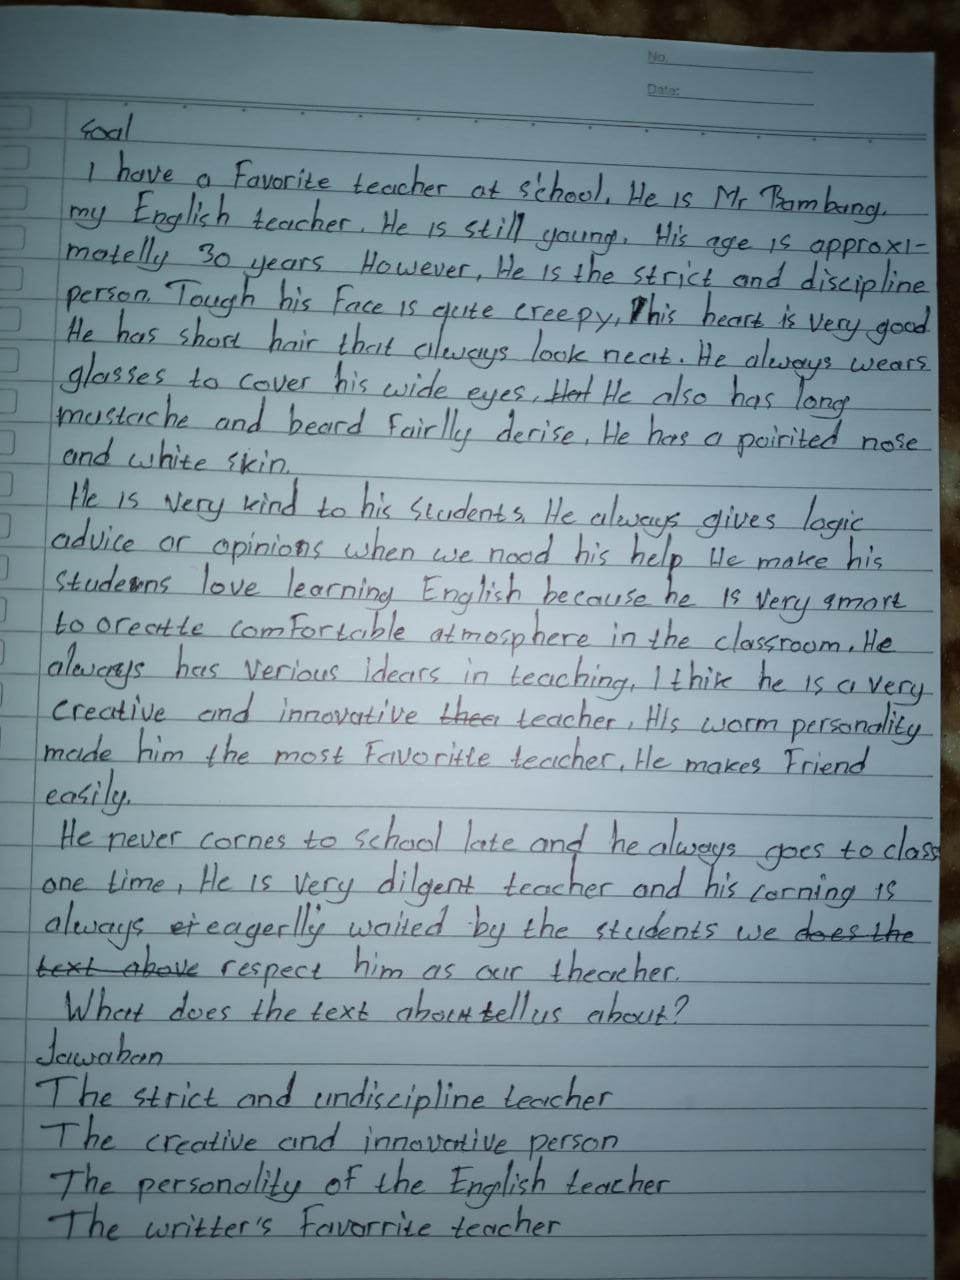 No.
Date:
Soal
I have a Favorite teacher at school. He is Mr Bambang.
my English teacher. He is still young. His age is approxi-
matelly 30 years However, He is the strict and discipline
person. Tough his Face is qute creepy, his heart is very good
He has short hair that always look neat. He always wears
glasses to cover his wide eyes. He also has long
mustache and beard Fairlly derise. He has a poirited nose
and white skin.
He is very kind to his students. He always gives logic
advice or opinions when we nood his help He make his
studenns love learning English because he is very smart
to oreatte comFortable atmosphere in the classroom. He
always has verious idears in teaching. I thik he is a very
creative and innovative teacher. His worm personality
made him the most Favoritte teacher. He makes Friend
easily.
He never cornes to school late and he always goes to class
one time, He is very dilgent teacher and his corning is
always eagerlly waited by the students we does the
text above respect him as our theacher.
What does the text about tell us about?
Jawaban
The strict and undiscipline teacher
The creative and innovative person
The personality of the English teacher
The writter's Favorrite teacher